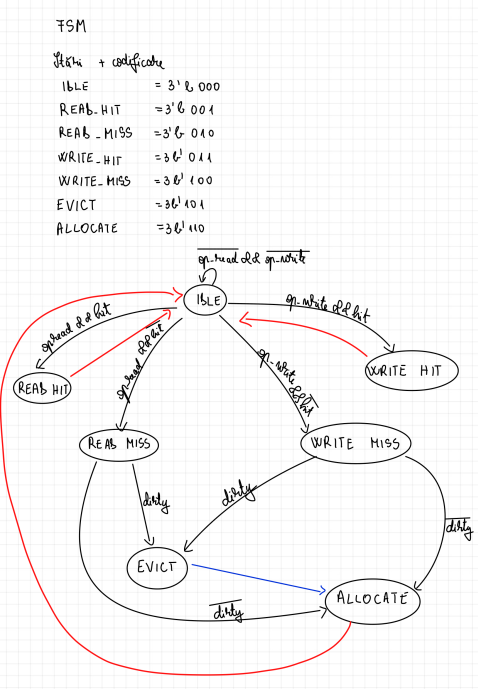 FSM
Stări + codificare
IDLE = 3'b 000
READ_HIT = 3'b 001
READ_MISS = 3'b 010
WRITE_HIT = 3b' 011
WRITE_MISS = 3b' 100
EVICT = 3b' 101
ALLOCATE = 3b' 110
op_read && op_write
IDLE
op_read && hit
op_write && hit
op_read && hit
op_write && hit
READ HIT
WRITE HIT
READ MISS
WRITE MISS
dirty
dirty
dirty
EVICT
ALLOCATE
dirty